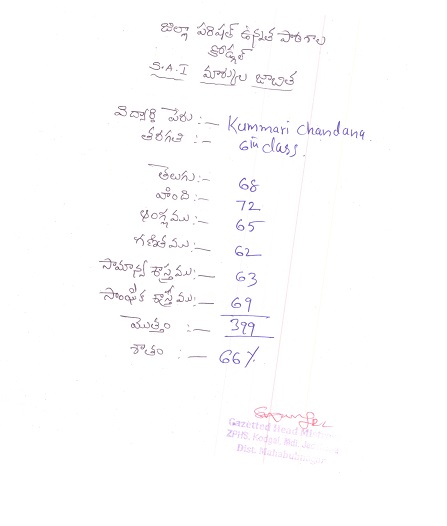 జిల్లా పరిషత్ ఉన్నత పాఠశాల
కోడ్గల్
S.A.I మార్కుల జాబిత
విద్యార్థి పేరు:— Kummari Chandana.
తరగతి :— 6th class.
తెలుగు:— 68
హింది:— 72
ఆంగ్లము:— 65
గణితము:— 62
సామాన్య శాస్త్రము:— 63
సాంఘిక శాస్త్రము:— 69
మొత్తం :— 399
శాతం :— 66%
Gazetted Head
ZPHS. Kodgal, Mdl.
Dist. Mahabub